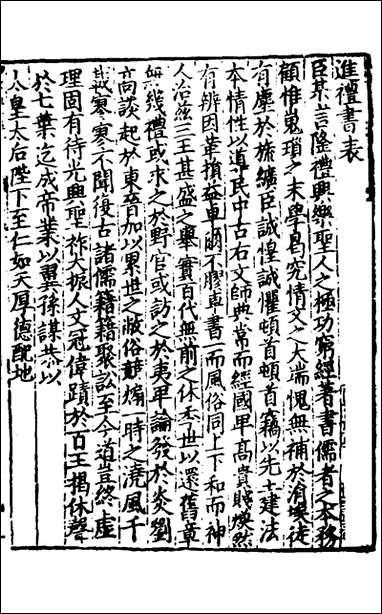 進禮書表
臣某言隆禮興樂聖人之極功窮經著書儒者之本務
顧惟嵬瑣之末學曷究情文之大端愧無補於涓埃徒
有塵於旒纊臣誠惶誠懼頓首頓首竊以先王建法
本情性以道民中古右文師典常而經國卑高貴賤煥然
有辨因革損益卓爾不膠車書一而風俗同上下和而神
人治茲三王甚盛之舉實百代無前之休季世以還舊章
無幾禮或求之於野官或訪之於夷卑論發於炎劉
高談起於東晉加以累世之敝俗競煽一時之澆風千
載寥寥不聞復古諸儒籍籍聚訟至今道豈終虛
理固有待光興聖祚大振人文冠偉蹟於百王揭休聲
於七葉迄成帝業以翼孫謀恭以
太皇太后陛下至仁如天厚德配地